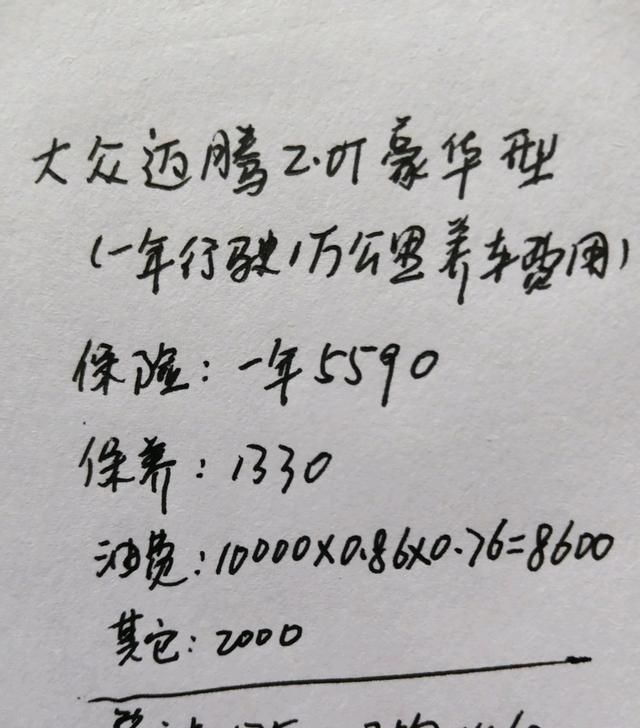 大众迈腾2.0T豪华型
(一年行驶1万公里养车费用)
保险：一年5590
保养：1330
油费：10000×0.86×0.76=8600
其它：2000